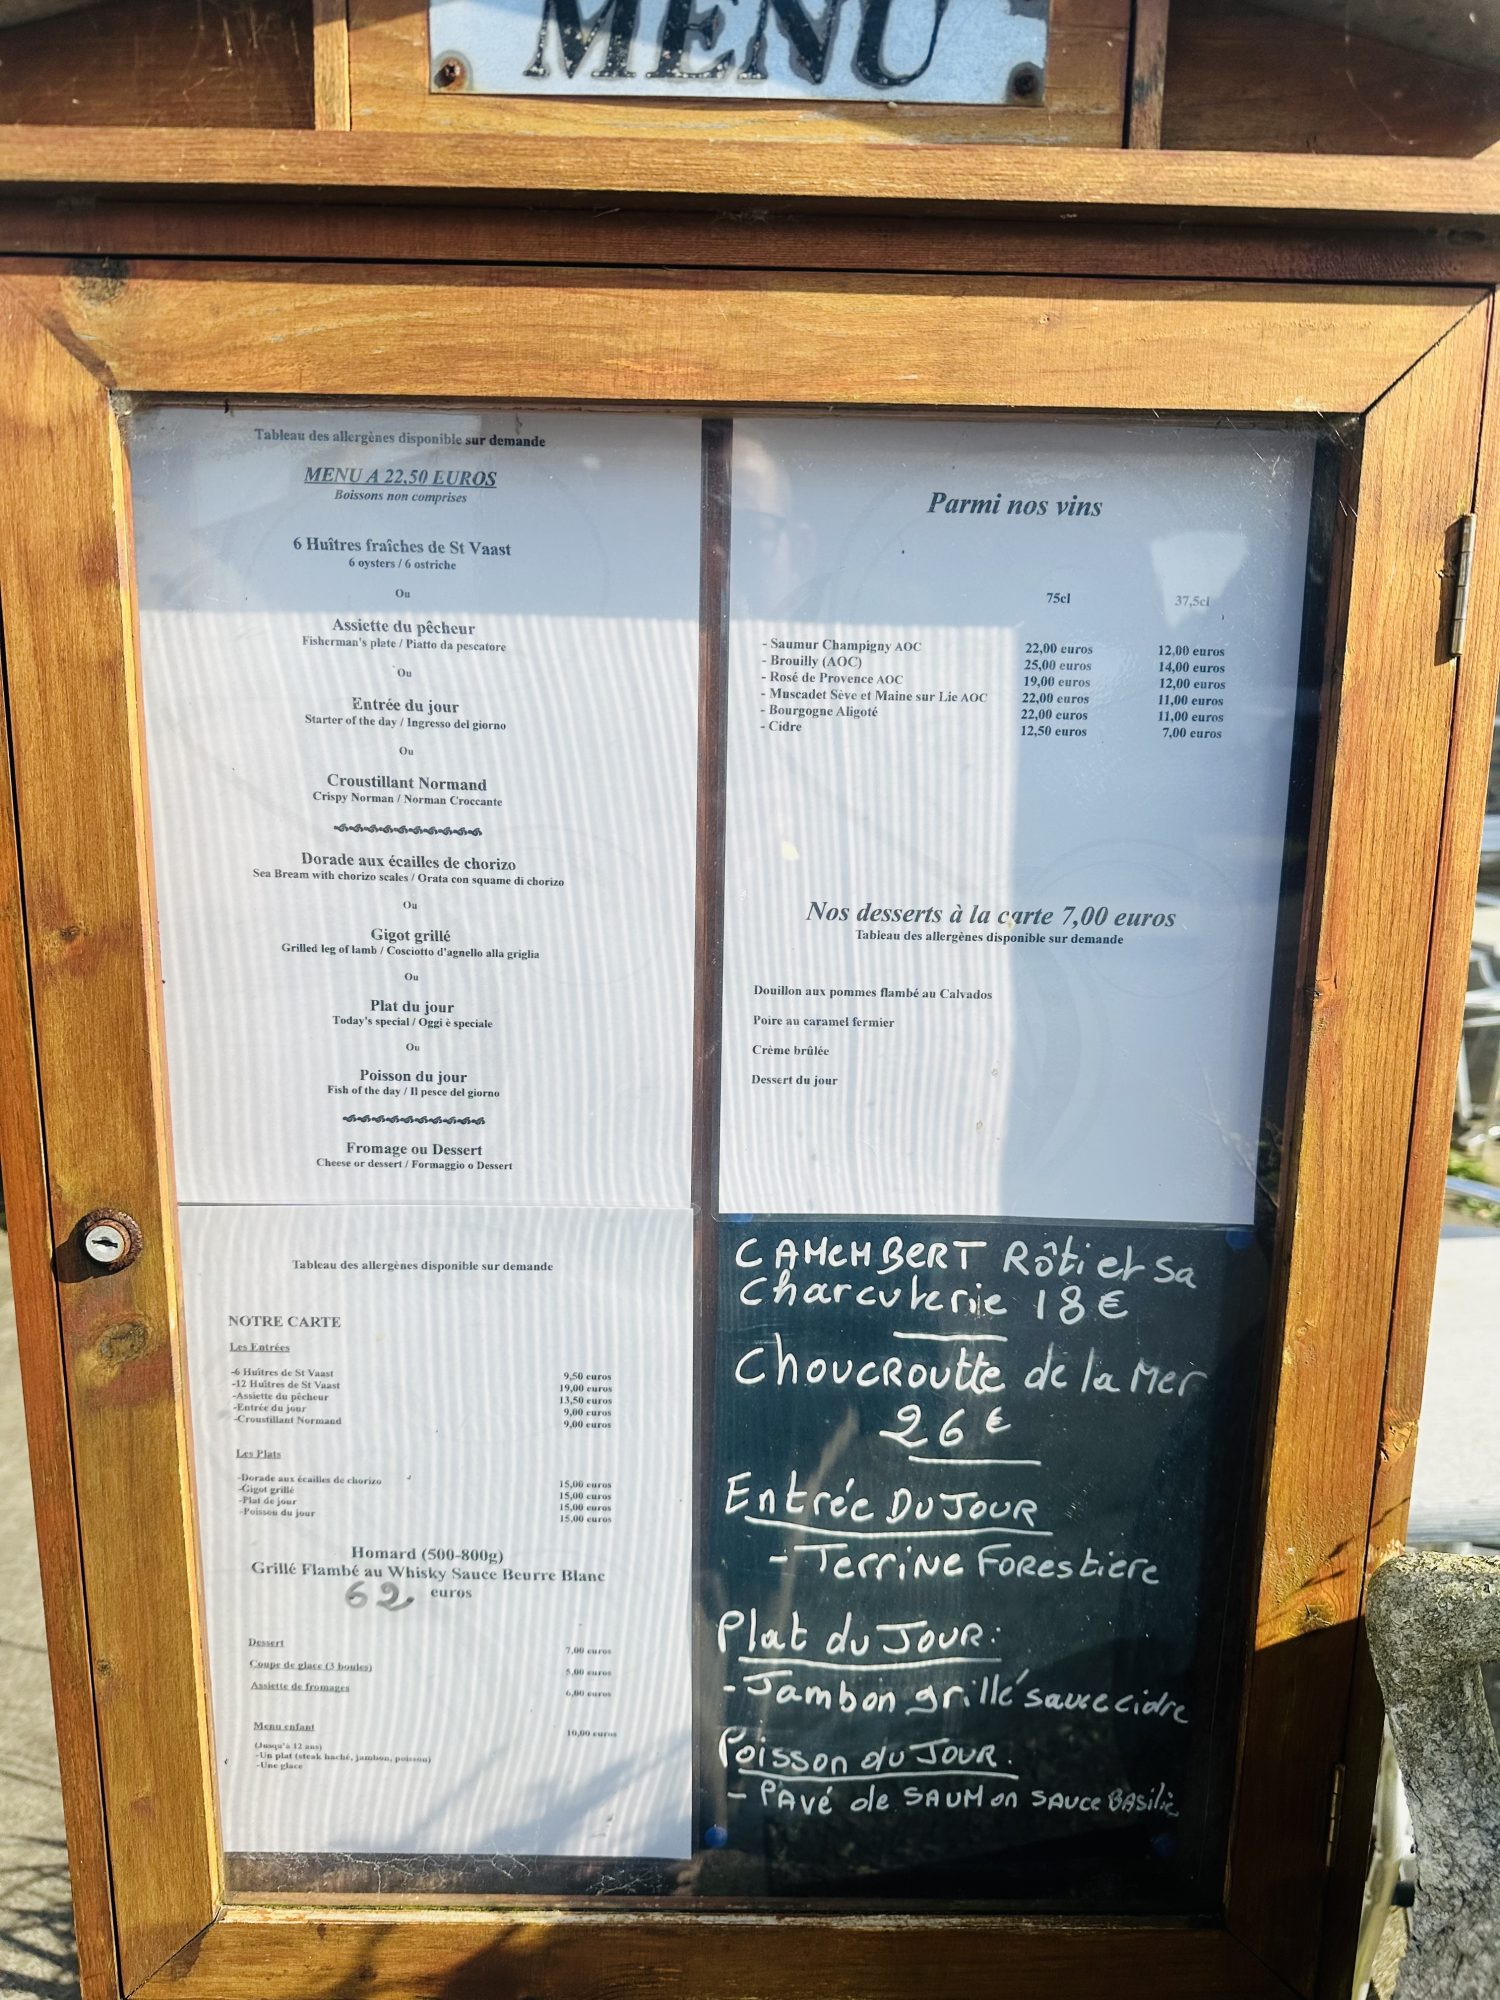 MENU
Tableau des allergènes disponible sur demande
MENU A 22,50 EUROS
Boissons non comprises
6 Huîtres fraîches de St Vaast
6 oysters / 6 ostriche
Ou
Assiette du pêcheur
Fisherman's plate / Piatto da pescatore
Ou
Entrée du jour
Starter of the day / Ingresso del giorno
Ou
Croustillant Normand
Crispy Norman / Norman Croccante
Dorade aux écailles de chorizo
Sea Bream with chorizo scales / Orata con squame di chorizo
Ou
Gigot grillé
Grilled leg of lamb / Cosciotto d'agnello alla griglia
Ou
Plat du jour
Today's special / Oggi è speciale
Ou
Poisson du jour
Fish of the day / Il pesce del giorno
Fromage ou Dessert
Cheese or dessert / Formaggio o Dessert
Tableau des allergènes disponible sur demande
NOTRE CARTE
Les Entrées
-6 Huîtres de St Vaast 9,50 euros
-12 Huîtres de St Vaast 19,00 euros
-Assiette du pêcheur 13,50 euros
-Entrée du jour 9,00 euros
-Croustillant Normand 9,00 euros
Les Plats
-Dorade aux écailles de chorizo 15,00 euros
-Gigot grillé 15,00 euros
-Plat de jour 15,00 euros
-Poisson du jour 15,00 euros
Homard (500-800g)
Grillé Flambé au Whisky Sauce Beurre Blanc
62 euros
Dessert 7,00 euros
Coupe de glace (3 boules) 5,00 euros
Assiette de fromages 6,00 euros
Menu enfant 10,00 euros
(Jusqu'à 12 ans)
-Un plat (steak haché, jambon, poisson)
-Une glace
Parmi nos vins
75cl 37,5cl
- Saumur Champigny AOC 22,00 euros 12,00 euros
- Brouilly (AOC) 25,00 euros 14,00 euros
- Rosé de Provence AOC 19,00 euros 12,00 euros
- Muscadet Sève et Maine sur Lie AOC 22,00 euros 11,00 euros
- Bourgogne Aligoté 22,00 euros 11,00 euros
- Cidre 12,50 euros 7,00 euros
Nos desserts à la carte 7,00 euros
Tableau des allergènes disponible sur demande
Douillon aux pommes flambé au Calvados
Poire au caramel fermier
Crème brûlée
Dessert du jour
CAMEMBERT Rôti et sa
Charcuterie 18€
Choucroutte de la Mer
26€
Entrée Du Jour
- Terrine Forestiere
Plat du Jour:
- Jambon grillé sauce cidre
Poisson du Jour.
- Pavé de SAUMon SAUCE BASilic